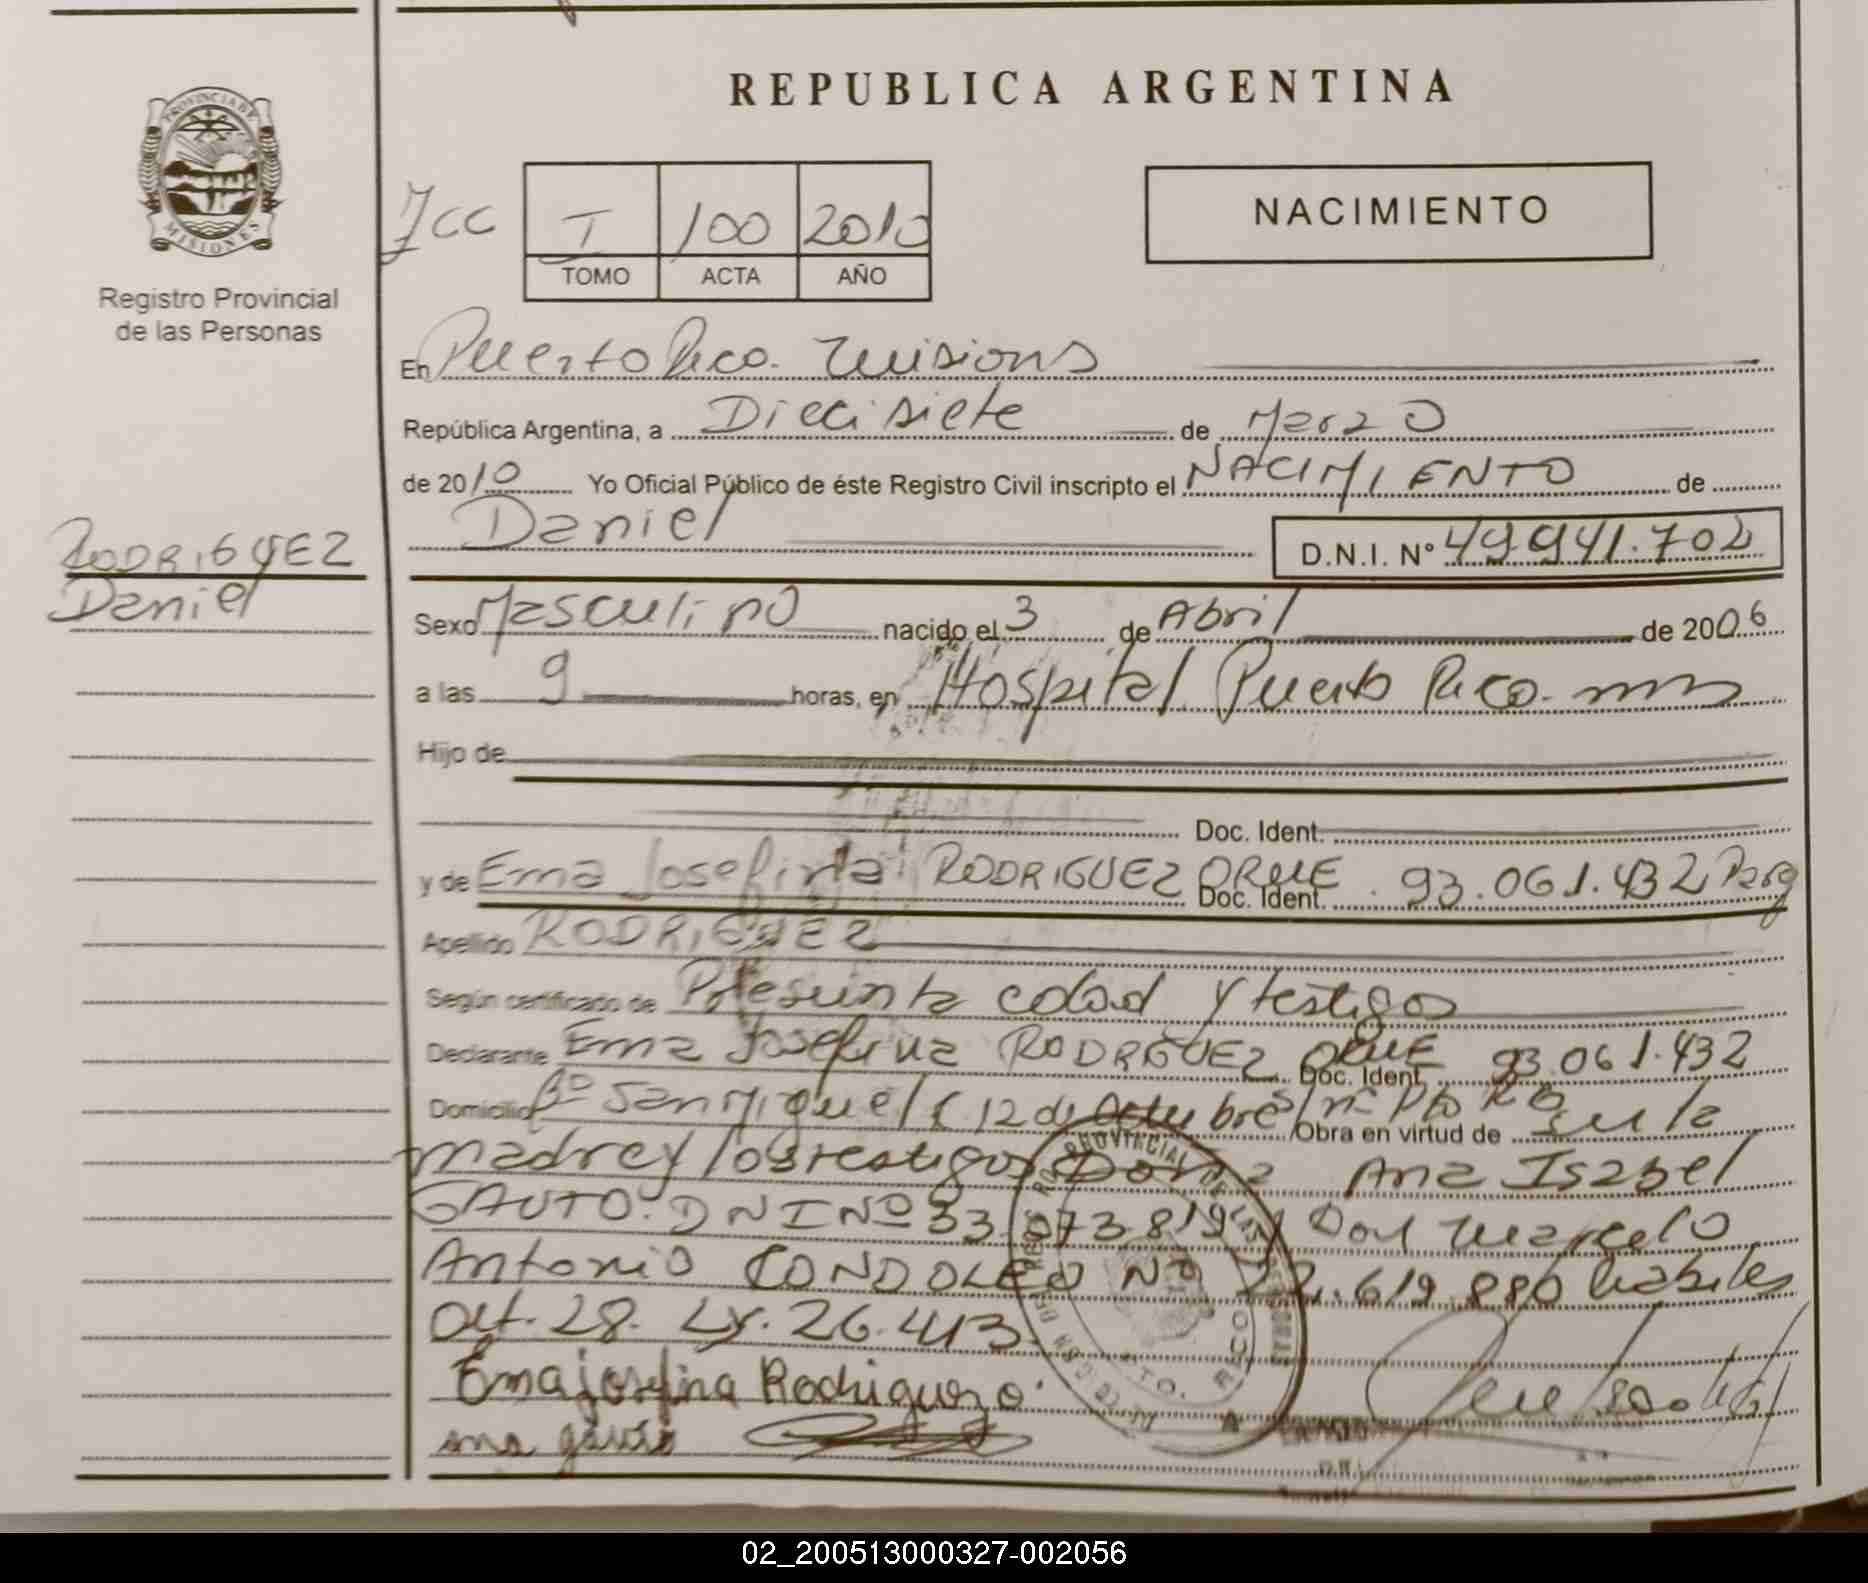 REPUBLICA ARGENTINA
PROVINCIA DE
MISIONES
Registro Provincial
de las Personas
Jcc
I 100 2010
TOMO ACTA AÑO
NACIMIENTO
En Puerto Rico. Misions
República Argentina, a Diecisiete de Marzo
de 2010 Yo Oficial Público de éste Registro Civil inscripto el NACIMIENTO de
Daniel D.N.I. N° 49.941.702
RODRIGUEZ
Daniel
Sexo Masculino nacido el 3 de Abril de 2006
a las 9 horas, en Hospital Puerto Rico. mns
Hijo de
Doc. Ident.
y de Ema Josefina RODRIGUEZ ORUE Doc. Ident. 93.061.432 Parg
Apellido RODRIGUEZ
Según certificado de Presunta edad y testigos
Declarante Ema Josefina RODRIGUEZ ORUE Doc. Ident. 93.061.432
Domicilio B° San Miguel 12 de Octubre s/n° Pto Rco Obra en virtud de Su la
madre y los testigos Doña Ana Isabel
GAUTO. DNI N° 33.073.819 Don Marcelo
Antonio CONDOLEO N° 22.619.880 habiles
Art. 28. Ly. 26.413.
Ema josefina Rodriguez o.
ana gauto
PROVINCIAL
PTO. RICO
02_200513000327-002056